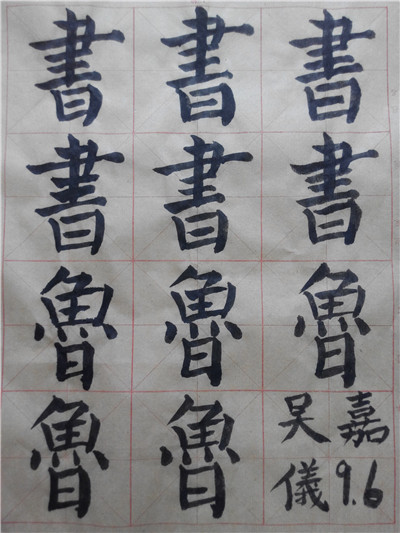 書書書
書書書
魯魯魯
魯魯
吴嘉
儀9.6